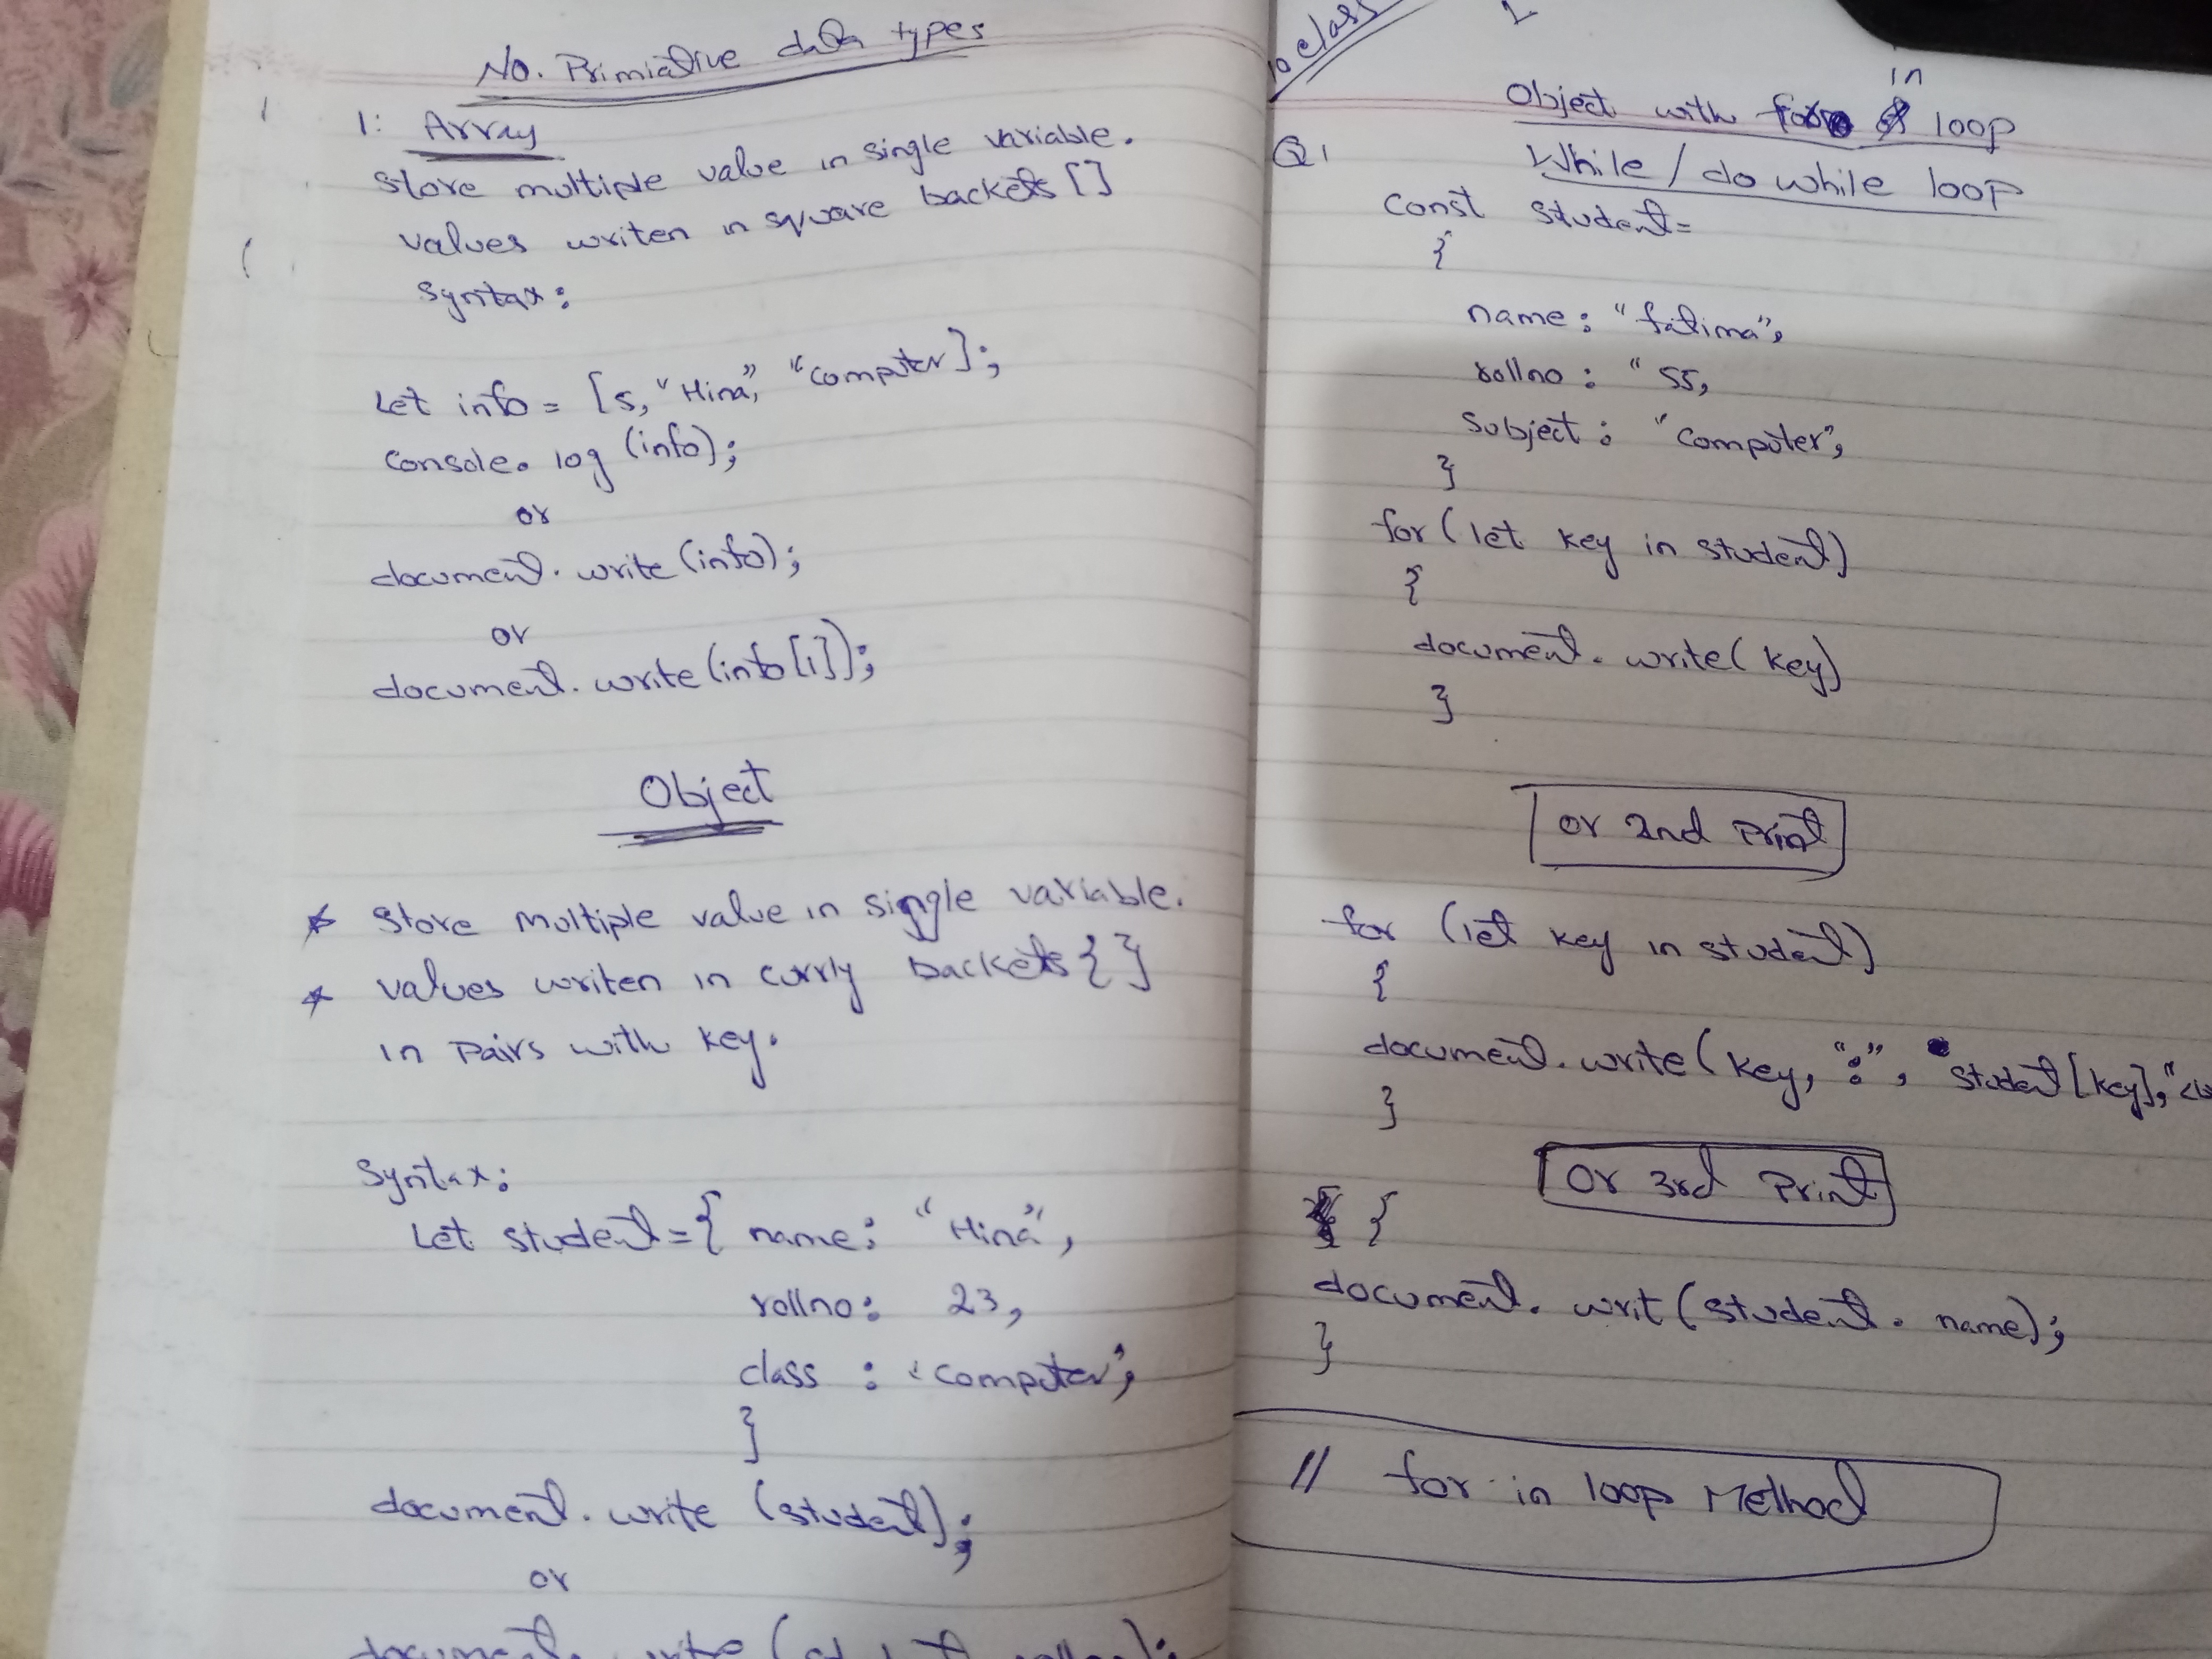 No. Primiative data types
1: Array
store multiple value in single variable.
values writen in square backets []
syntax:
Let info = [5, "Hina", "computer];
console. log (info);
or
document. write (info);
or
document. write (info[i]);
Object
* store multiple value in single variable.
* values writen in curly backets { }
in pairs with key.
syntax:
Let student = { name: "Hina",
rollno: 23,
class : "computer",
}
document. write (student);
or
class
Object with for in loop
While / do while loop
Q1
const student=
{
name: "fatima",
rollno : "55,
subject : "computer",
}
for ( let key in student)
{
document. write( key)
}
or 2nd print
for (let key in student)
{
document. write( key, ":", student [key],
}
or 3rd print
{
document. writ (student. name);
}
// for in loop Method